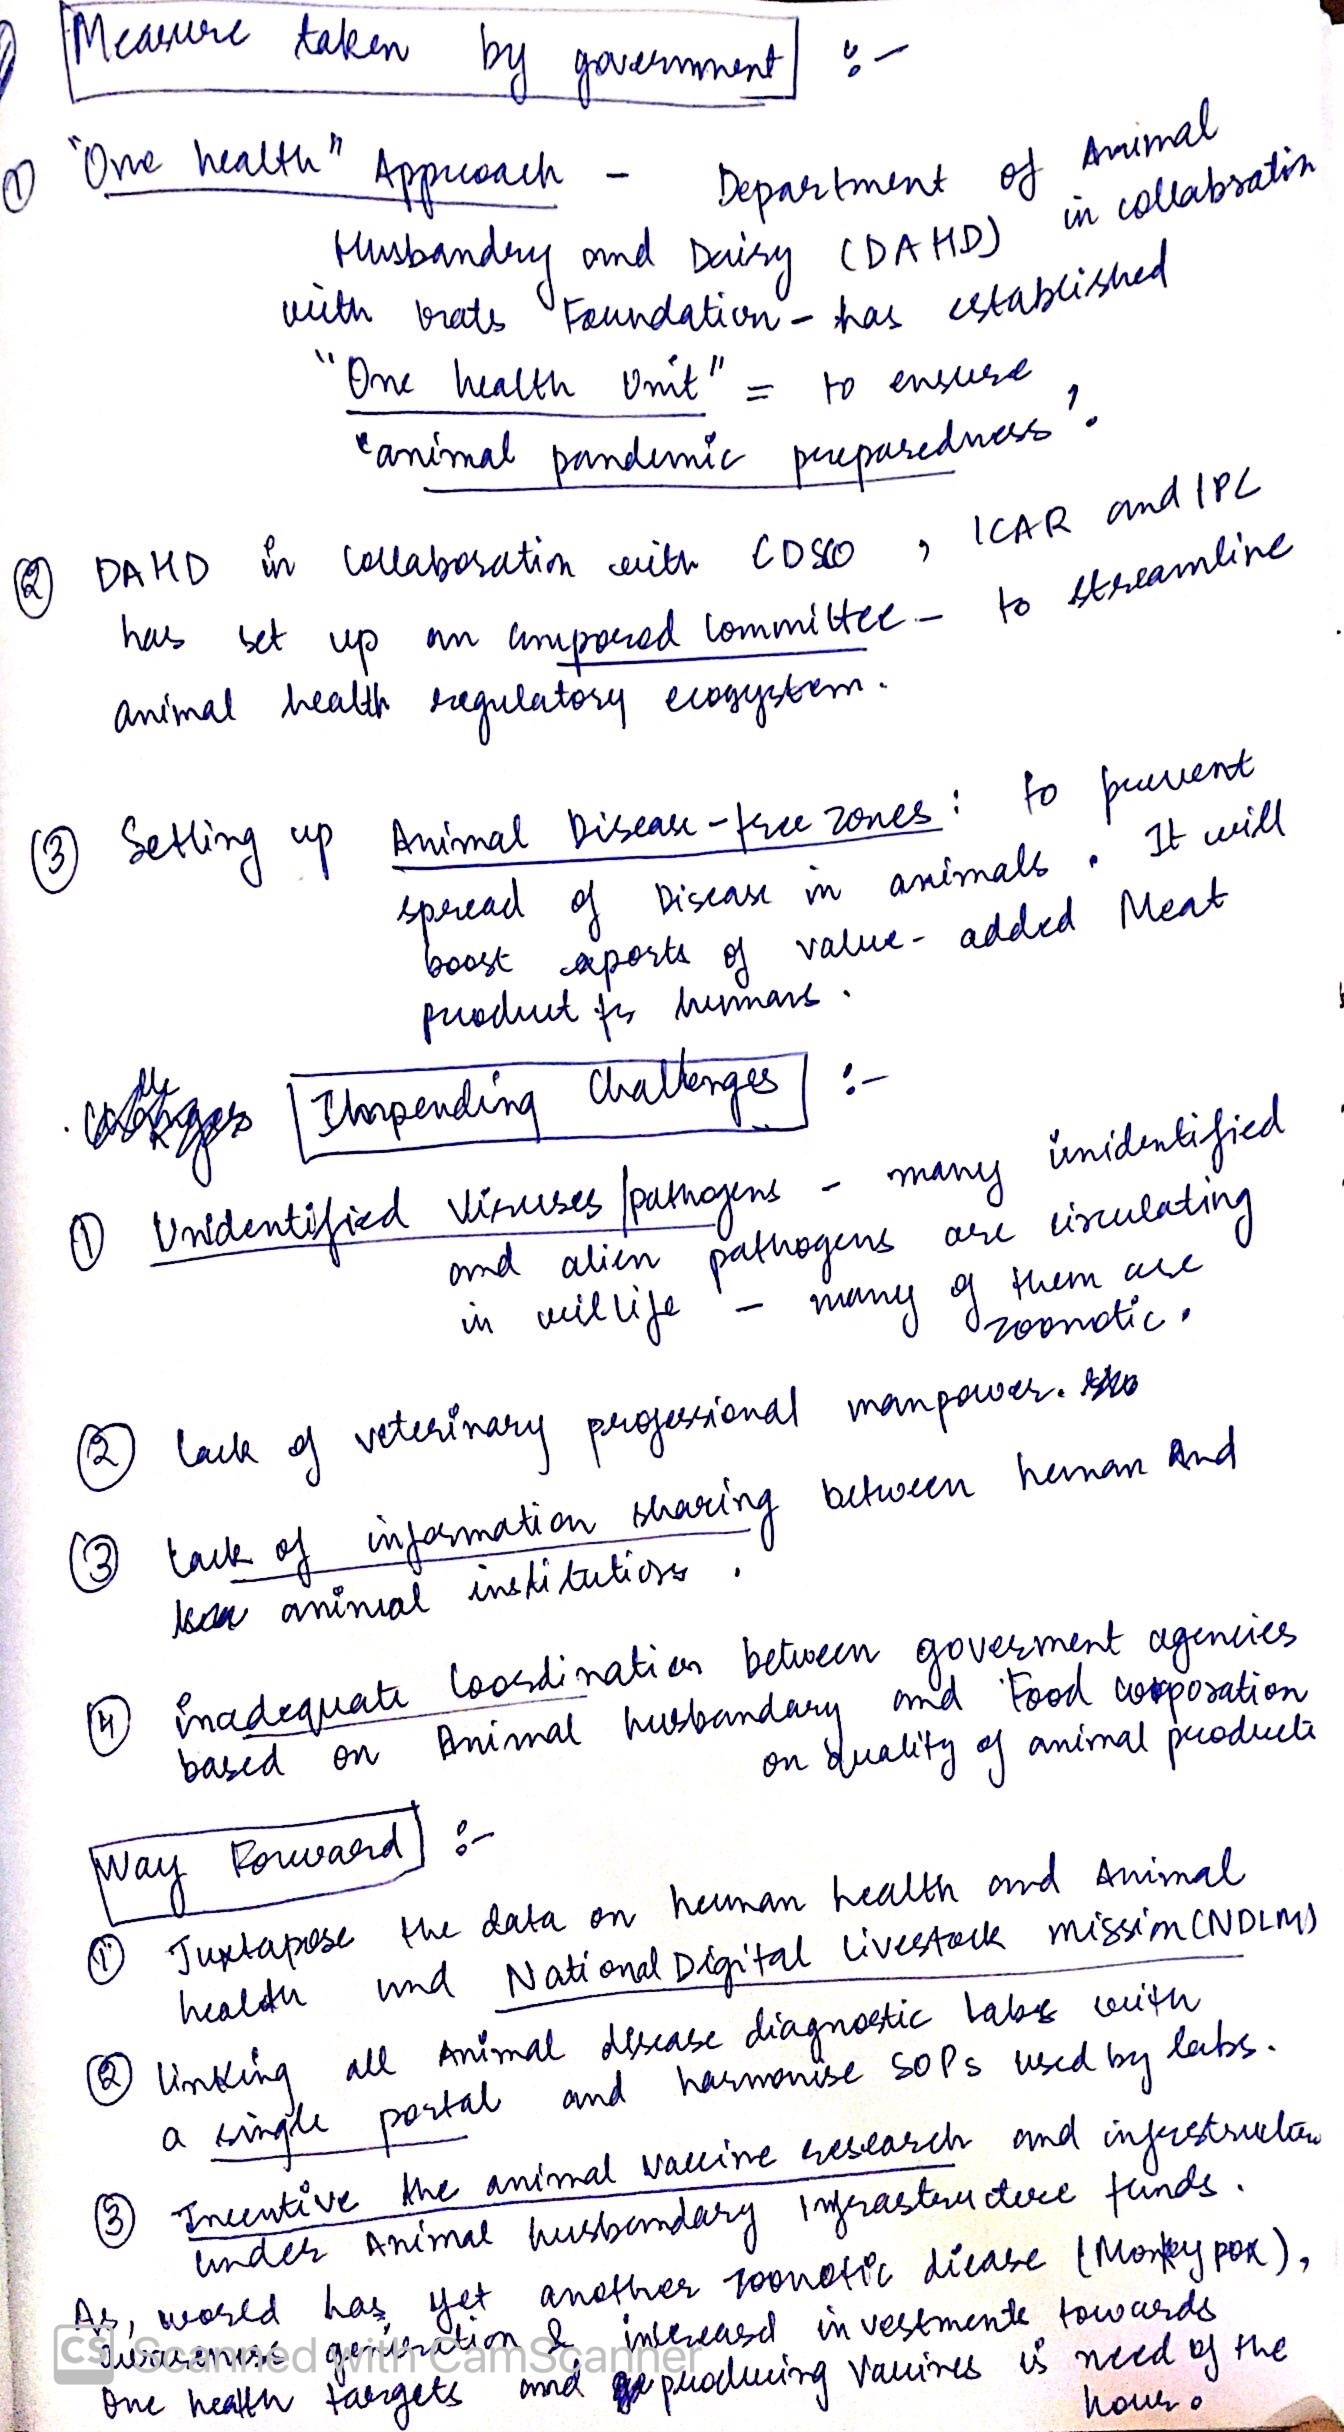 Measure taken by government :-
① "One health" Approach - Department of Animal
Husbandry and Dairy (DAHD) in collabsratin
with Gates Foundation - has established
"One health Unit" = to ensure
"animal pandemic preparedness".
② DAHD in collaboration with CDSCO, ICAR and IPC
has set up an empowered Committee - to streamline
animal health regulatory ecosystem.
③ Setting up Animal Disease-free zones: to prevent
spread of Disease in animals. It will
boost exports of value-added Meat
product for humans.
Impending Challenges :-
① Unidentified Viruses/pathogens - many unidentified
and alien pathogens are circulating
in willife - many of them are
zoonotic.
② lack of veterinary professional manpower.
③ Lack of information sharing between human And
animal institutions.
④ inadequate Coordination between goverment agencies
based on Animal husbandary and Food corporation
on quality of animal products
Way Forward :-
① Juxtapose the data on human health and Animal
health und National Digital Livestock mission (NDLM)
② linking all Animal disease diagnostic labs with
a single portal and harmonise SOPs used by labs.
③ Incentive the animal vaccine research and infrastructure
under Animal husbandary Infrastructure funds.
As, world has yet another zoonotic diease (Monkey pox),
awareness generation & increased investments towards
One health targets and producing Vaccines is need of the
hour.
CS Scanned with CamScanner